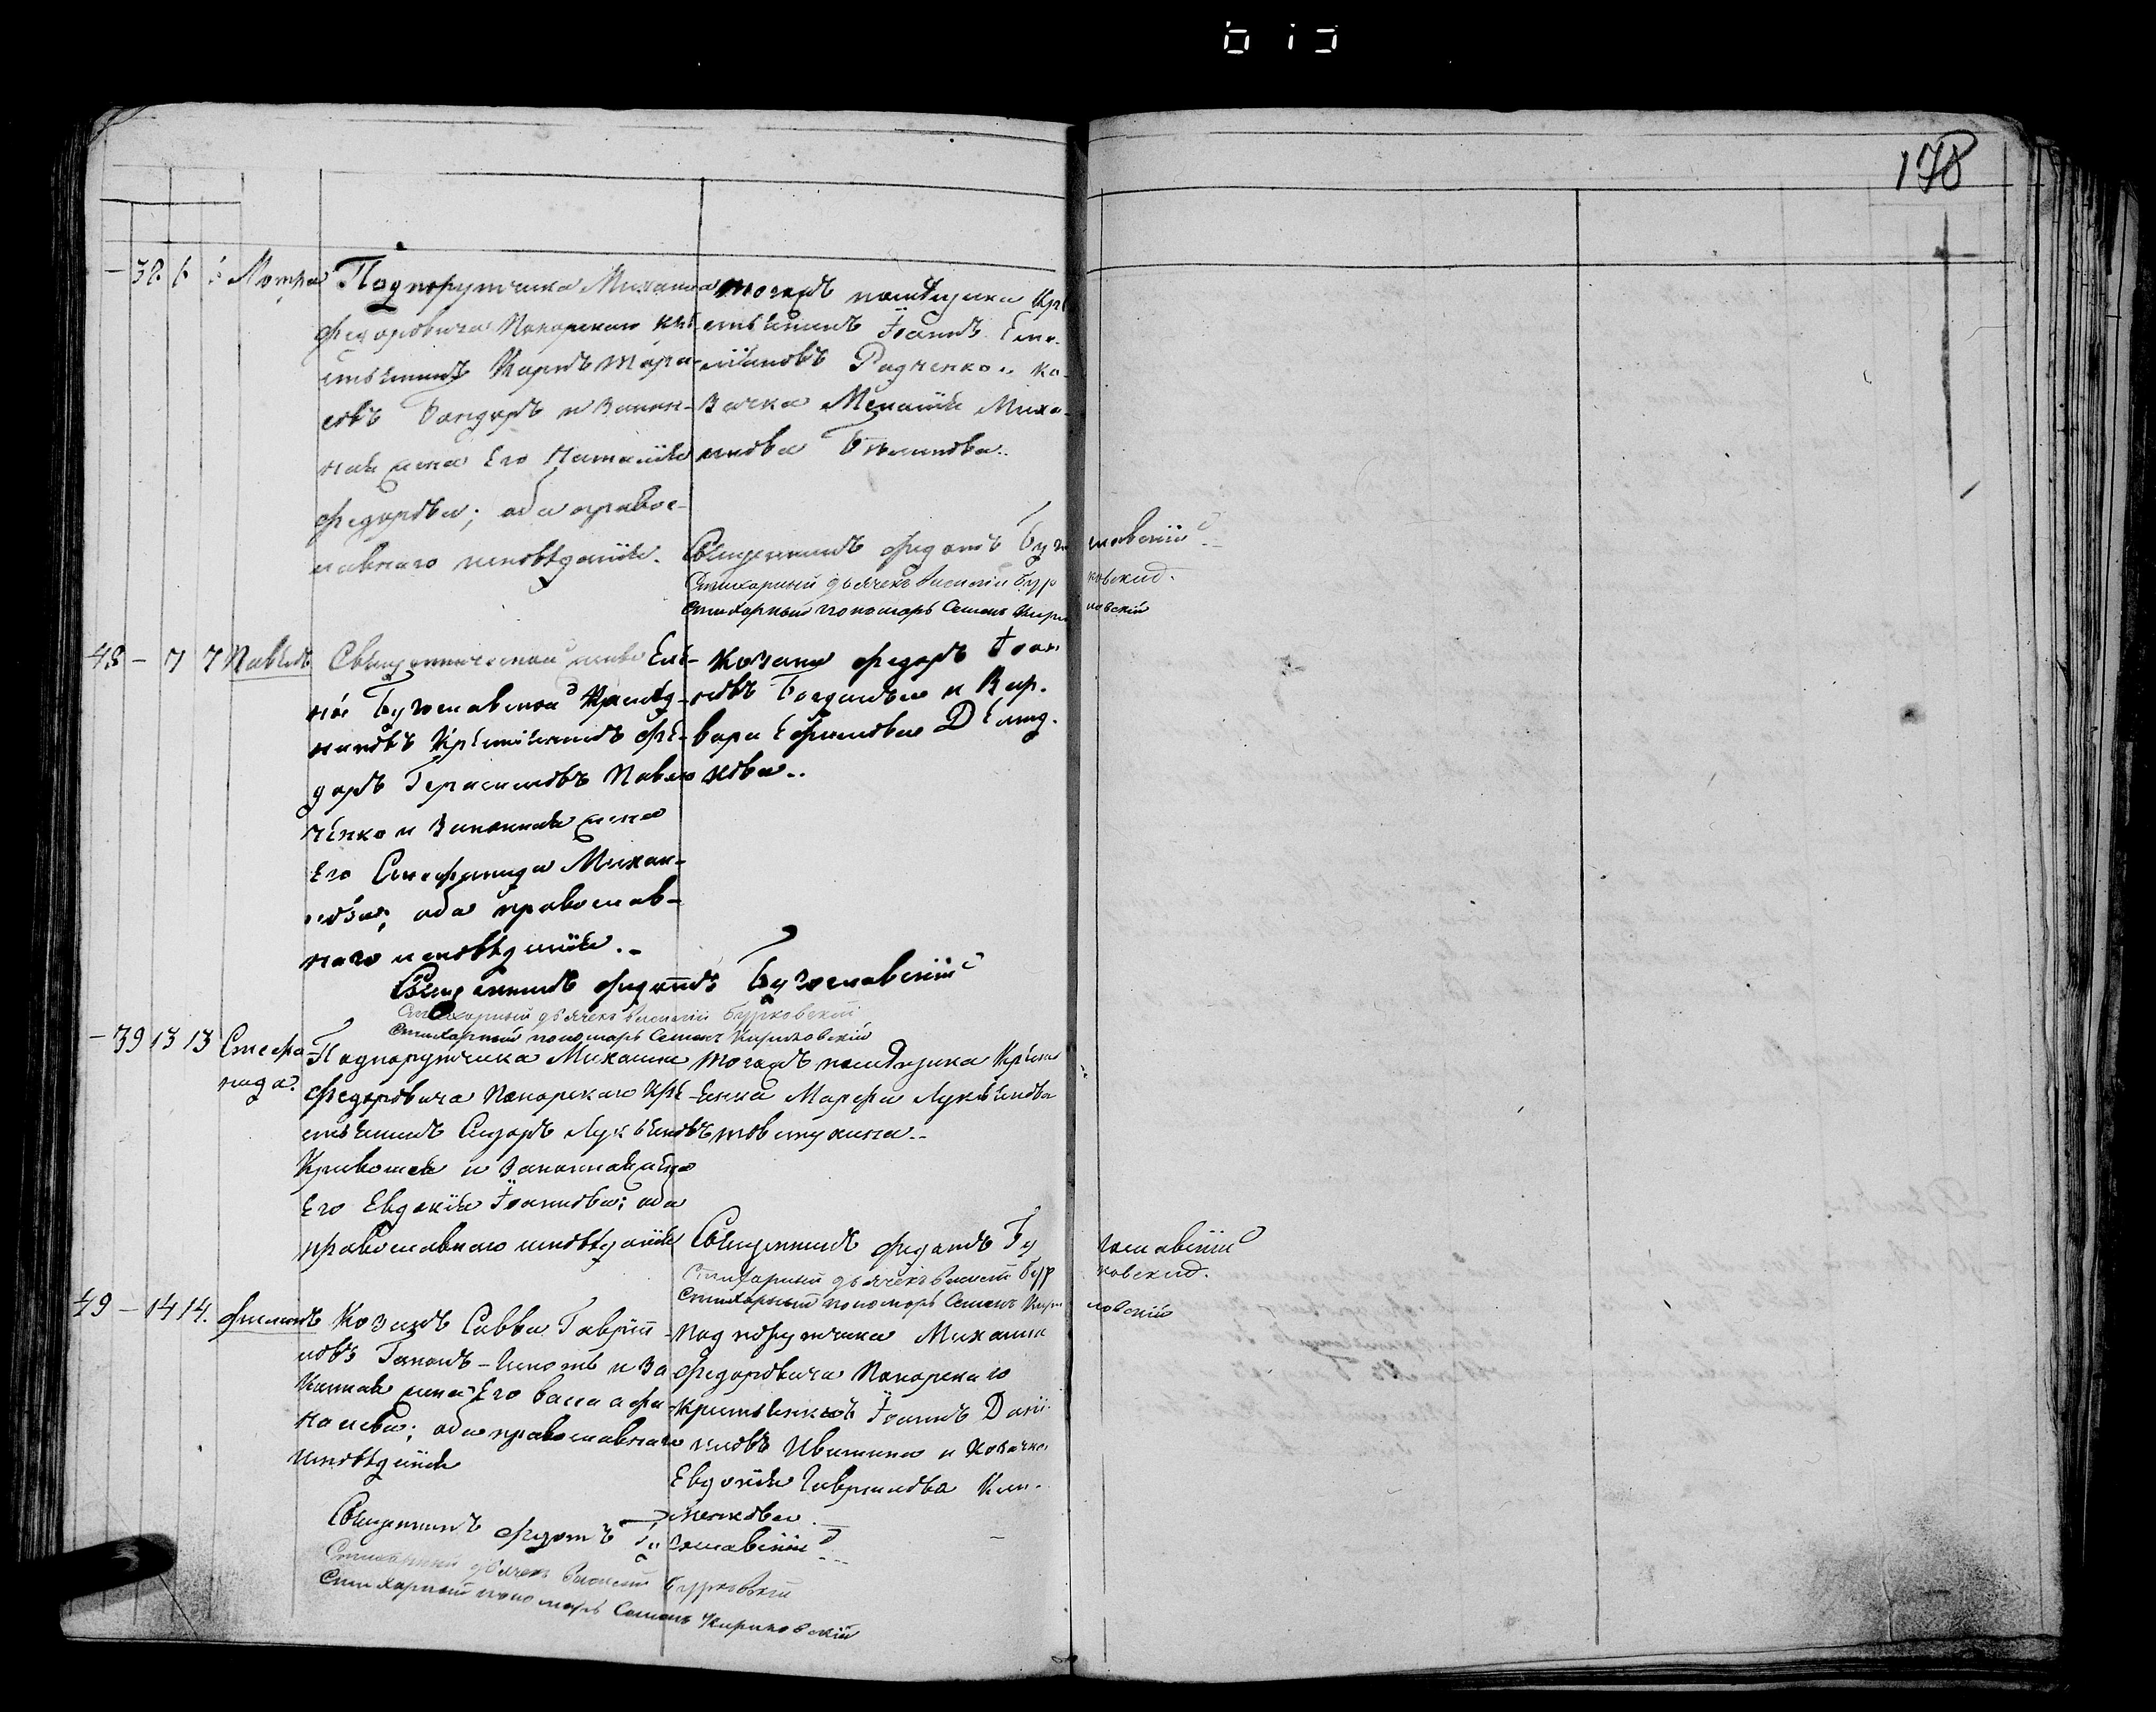 178
— 38. 6 6 Мотря
Подпорутчика Михаила
Федоровича Покорскаго кре-
стьянинъ Карпъ Тара-
совъ Бондаръ и закон-
ная жена его Наталія
Федорова; оба правос-
лавнаго исповѣданія.
тогожъ помѣщика кре
стьянинъ Іоаннъ Еме-
ліановъ Радченко и ко-
зачка Меланія Миха-
илова
Священникъ Федотъ Бугославскій
Стихарный дьячекъ Василій Бурковский.
Стихарный пономарь Семенъ Кириловскій
48 — 7 7 Павелъ
Священнической жены Еле-
ны Бугославской
крестьянинъ Фе-
доръ Герасимовъ Павлю
ченко и законная жена
его Стефанида Михаи-
лова; оба православ-
наго исповѣданія.
Козакъ Федоръ Іоан
новъ и Вар-
вара Ефимова
кова..
Священникъ Федотъ Бугославскій
Стихарный дьячекъ Василій Бурковский
Стихарный пономарь Семенъ Кириловскій
— 39 13 13 Стефа-
нида.
Подпорутчика Михаила
Федоровича Покорскаго кре-
стьянинъ Сидоръ Лукьяновъ
Кривошея и законная жена
его Евдокія Іоаннова; оба
православнаго исповѣданія
тогожъ помѣщика крест
янка Марфа Лукьянова
Товстухина..
Священникъ Федотъ Бугославскій
Стихарный дьячекъ Василій Бурковский.
Стихарный пономарь Семенъ Кириловскій
49 — 14 14. Филипъ
Козакъ Савва Гавріи-
ловъ и за
конная жена его Васса Афа-
насіева; оба православнаго
исповѣданія
Подпорутчика Михаила
Федоровича Покорскаго
крестьянинъ Іоаннъ Дані-
иловъ и козачка
Евдокія Гаврилова Кли-
менкова.
Священникъ Федотъ Бугославскій
Стихарный дьячекъ Василій Бурковский
Стихарный пономарь Семенъ Кириловскій